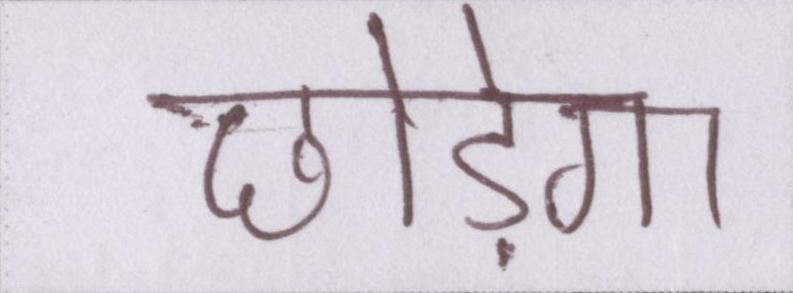 छोड़ेगा